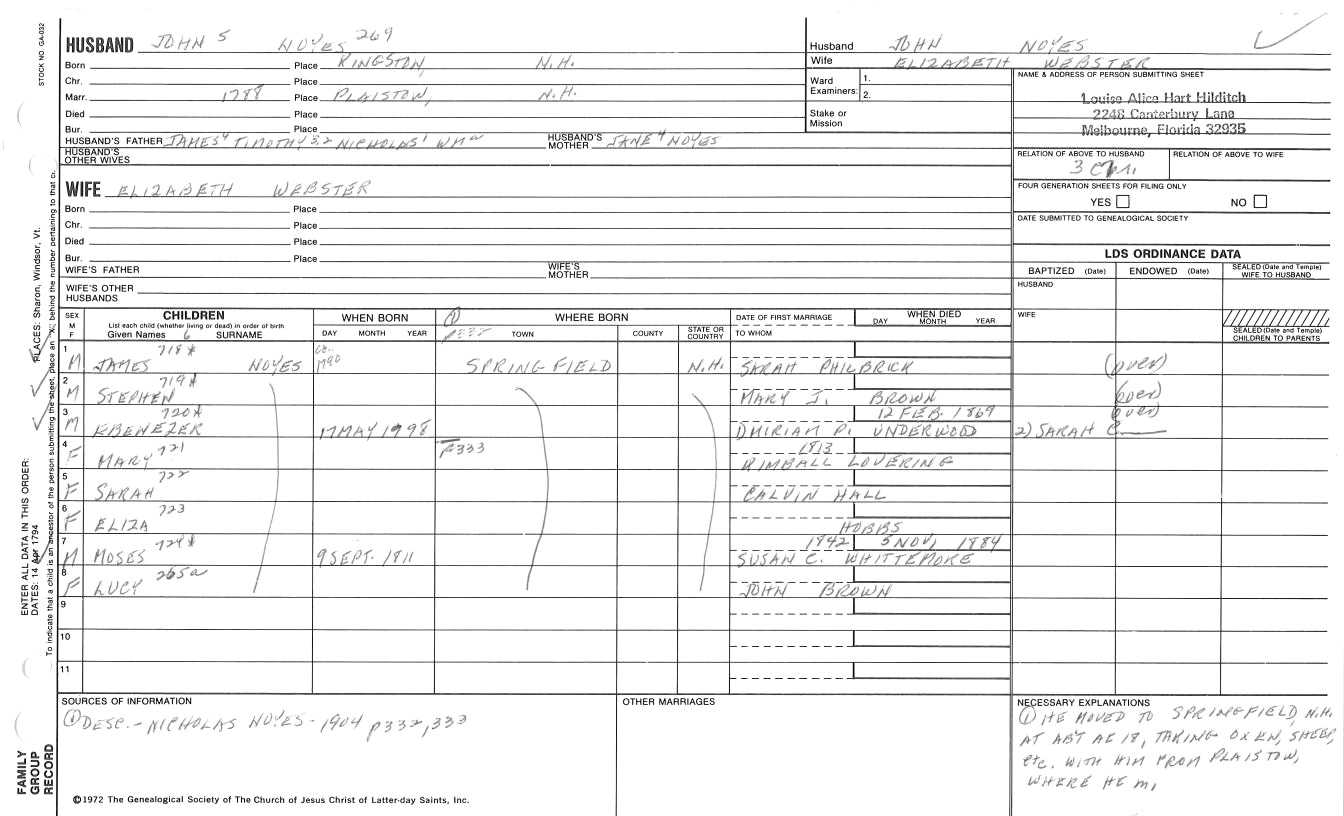 STOCK NO. GA-032
HUSBAND JOHN 5 NOYES 269
Born Place KINGSTON, N.H.
Chr. Place
Marr. 1788 Place PLAISTOW, N.H.
Died Place
Bur. Place
HUSBAND'S FATHER JAMES4 TIMOTHY3,2 NICHOLAS1 WMa HUSBAND'S MOTHER JANE4 NOYES
HUSBAND'S OTHER WIVES
WIFE ELIZABETH WEBSTER
Born Place
Chr. Place
Died Place
Bur. Place
WIFE'S FATHER WIFE'S MOTHER
WIFE'S OTHER HUSBANDS
Husband JOHN NOYES
Wife ELIZABETH WEBSTER
Ward Examiners: 1.
2.
Stake or Mission
NAME & ADDRESS OF PERSON SUBMITTING SHEET
Louise Alice Hart Hilditch
2248 Canterbury Lane
Melbourne, Florida 32935
RELATION OF ABOVE TO HUSBAND RELATION OF ABOVE TO WIFE
FOUR GENERATION SHEETS FOR FILING ONLY
YES NO
DATE SUBMITTED TO GENEALOGICAL SOCIETY
LDS ORDINANCE DATA
BAPTIZED (Date) ENDOWED (Date) SEALED (Date and Temple) WIFE TO HUSBAND
HUSBAND
WIFE
SEALED (Date and Temple) CHILDREN TO PARENTS
SEX M F
CHILDREN
List each child (whether living or dead) in order of birth
Given Names 6 SURNAME
WHEN BORN
DAY MONTH YEAR
① WHERE BORN
p332 TOWN COUNTY STATE OR COUNTRY
DATE OF FIRST MARRIAGE
TO WHOM
WHEN DIED
DAY MONTH YEAR
1 M JAMES 718* NOYES 1790 SPRINGFIELD N.H. SARAH PHILBRICK (over)
2 M STEPHEN 719* MARY J. BROWN (over)
3 M EBENEZER 720* 17 MAY 1998 12 FEB. 1869 UNDERWOOD over
2) SARAH C
4 F MARY 721 p333 1813 KIMBALL LOVERING
5 F SARAH 722 CALVIN HALL
6 F ELIZA 723 HOBBS
7 M MOSES 724* 9 SEPT. 1811 1842 5 NOV, 1884 SUSAN C. WHITTEMORE
8 F LUCY 265a JOHN BROWN
9
10
11
SOURCES OF INFORMATION
① DESC. - NICHOLAS NOYES - 1904 p332,333
OTHER MARRIAGES
NECESSARY EXPLANATIONS
① HE MOVED TO SPRINGFIELD, N.H.
AT ABT AE 18, TAKING OXEN, SHEEP,
etc. WITH HIM FROM PLAISTOW,
WHERE HE m,
©1972 The Genealogical Society of The Church of Jesus Christ of Latter-day Saints, Inc.
FAMILY GROUP RECORD
ENTER ALL DATA IN THIS ORDER:
DATES: 14 Apr 1794
PLACES: Sharon, Windsor, Vt.
To indicate that a child is an ancestor of the person submitting the sheet, place an "X" behind the number pertaining to that